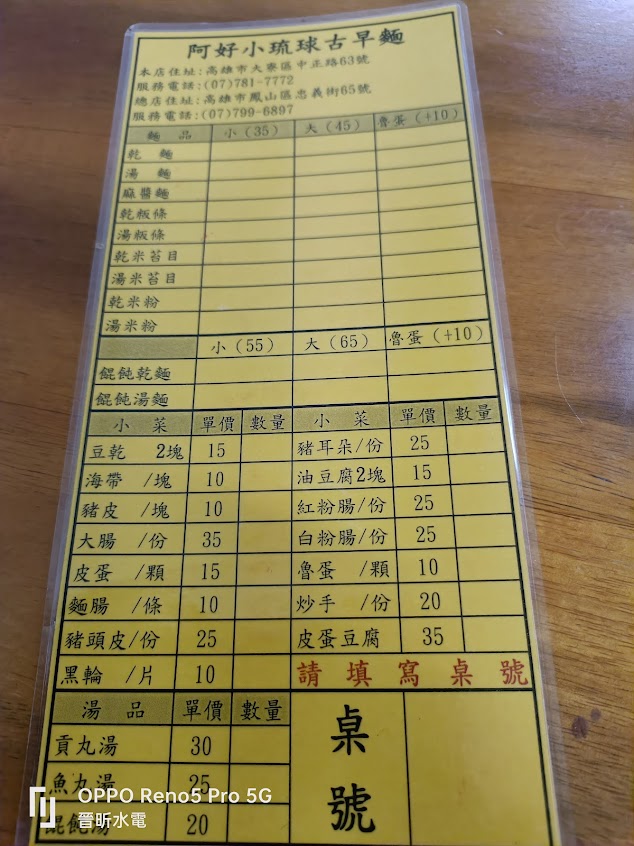 阿好小琉球古早麵
本店住址:高雄市大寮區中正路63號
服務電話:(07)781-7772
總店住址:高雄市鳳山區忠義街65號
服務電話:(07)799-6897
麵 品 小(35) 大(45) 魯蛋(+10)
乾 麵
湯 麵
麻醬麵
乾粄條
湯粄條
乾米苔目
湯米苔目
乾米粉
湯米粉
小(55) 大(65) 魯蛋(+10)
餛飩乾麵
餛飩湯麵
小 菜 單價 數量 小 菜 單價 數量
豆乾 2塊 15 豬耳朵/份 25
海帶 /塊 10 油豆腐2塊 15
豬皮 /塊 10 紅粉腸/份 25
大腸 /份 35 白粉腸/份 25
皮蛋 /顆 15 魯蛋 /顆 10
麵腸 /條 10 炒手 /份 20
豬頭皮/份 25 皮蛋豆腐 35
黑輪 /片 10 請填寫桌號
湯 品 單價 數量 桌號
貢丸湯 30
魚丸湯 25
餛飩湯 20
OPPO Reno5 Pro 5G
晉昕水電